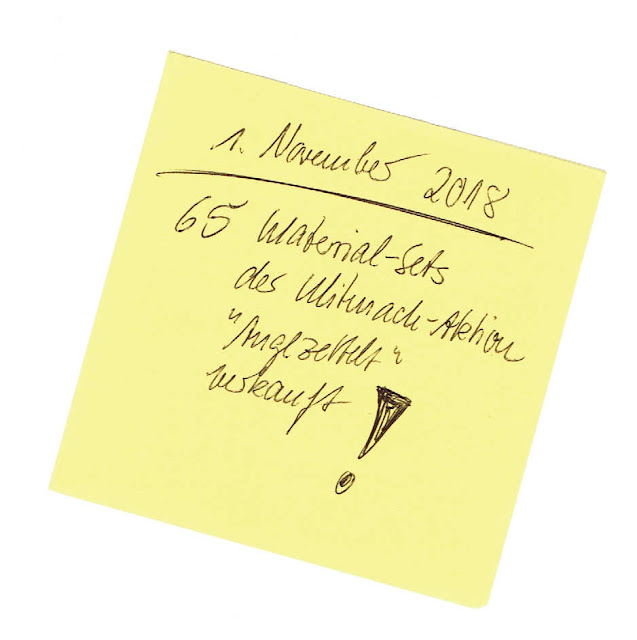 1. November 2018
65 Material-Sets
der Mitmach-Aktion
"Angezettelt"
verkauft!